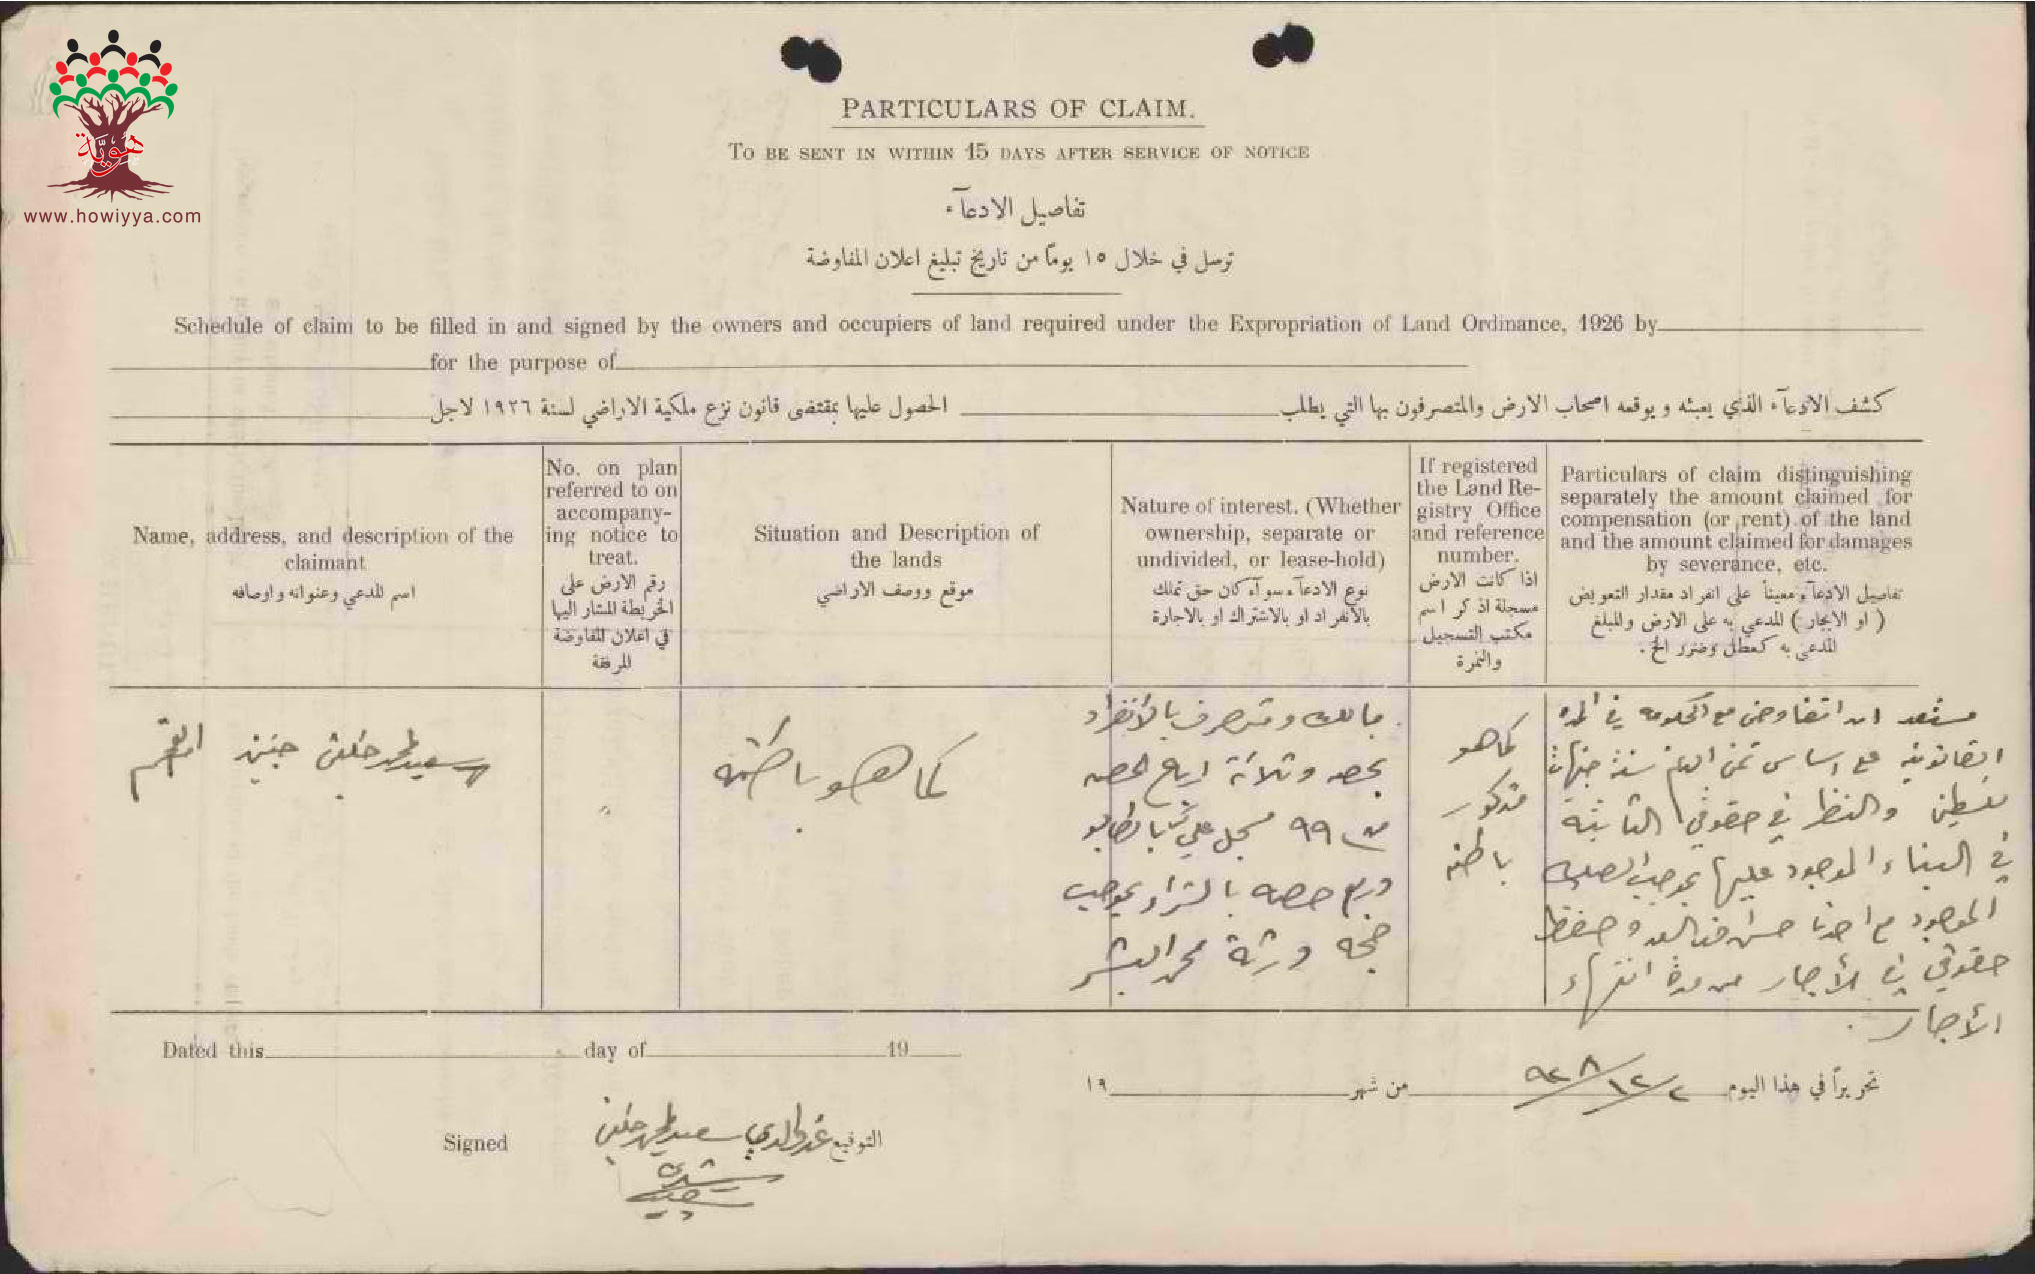 هويّة
www.howiyya.com
PARTICULARS OF CLAIM.
TO BE SENT IN WITHIN 15 DAYS AFTER SERVICE OF NOTICE
تفاصيل الادعآء
ترسل في خلال ١٥ يوماً من تاريخ تبليغ اعلان المفاوضة
Schedule of claim to be filled in and signed by the owners and occupiers of land required under the Expropriation of Land Ordinance, 1926 by
for the purpose of
كشف الادعآء الذي يعبئه و يوقعه اصحاب الارض والمتصرفون بها التي يطلب الحصول عليها بمقتضى قانون نزع ملكية الاراضي لسنة ١٩٢٦ لاجل
Name, address, and description of the
claimant
اسم المدعي وعنوانه واوصافه
No. on plan
referred to on
accompany-
ing notice to
treat.
رقم الارض على
الخريطة المشار اليها
في اعلان المفاوضة
المرفقة
Situation and Description of
the lands
موقع ووصف الاراضي
Nature of interest. (Whether
ownership, separate or
undivided, or lease-hold)
نوع الادعآء سوآء كان حق تملك
بالانفراد او بالاشتراك او بالاجارة
If registered
the Land Re-
gistry Office
and reference
number.
اذا كانت الارض
مسجلة اذكر اسم
مكتب التسجيل
والنمرة
Particulars of claim distinguishing
separately the amount claimed for
compensation (or rent) of the land
and the amount claimed for damages
by severance, etc.
تفاصيل الادعآء مبيناً على انفراد مقدار التعويض
( او الايجار ) المدعي به على الارض والمبلغ
المدعى به كعطل وضرر الخ.
سعيد
كما هو باطنه
مالك ومتصرف بالانفراد
بحصه وثلاثة ارباع الحصه
من ٩٩ مسجل
وربع حصه بالشراء بموجب
حجه ورثة محمد
كما هو
مذكور
باطنه
مستعد ان اتفاوض مع الحكومه في المده
القانونيه على اساس ثمن جنيهات
فلسطيني والنظر في حقوقي الثابتة
في البناء الموجود عليها بموجب
الموجود مع وحفظ
حقوقي في الأيجار من مدة انتهاء
الأيجار.
Dated this day of 19
تحريراً في هذا اليوم ٢/١٢/٩٢٨ من شهر ١٩
Signed
التوقيع سعيد